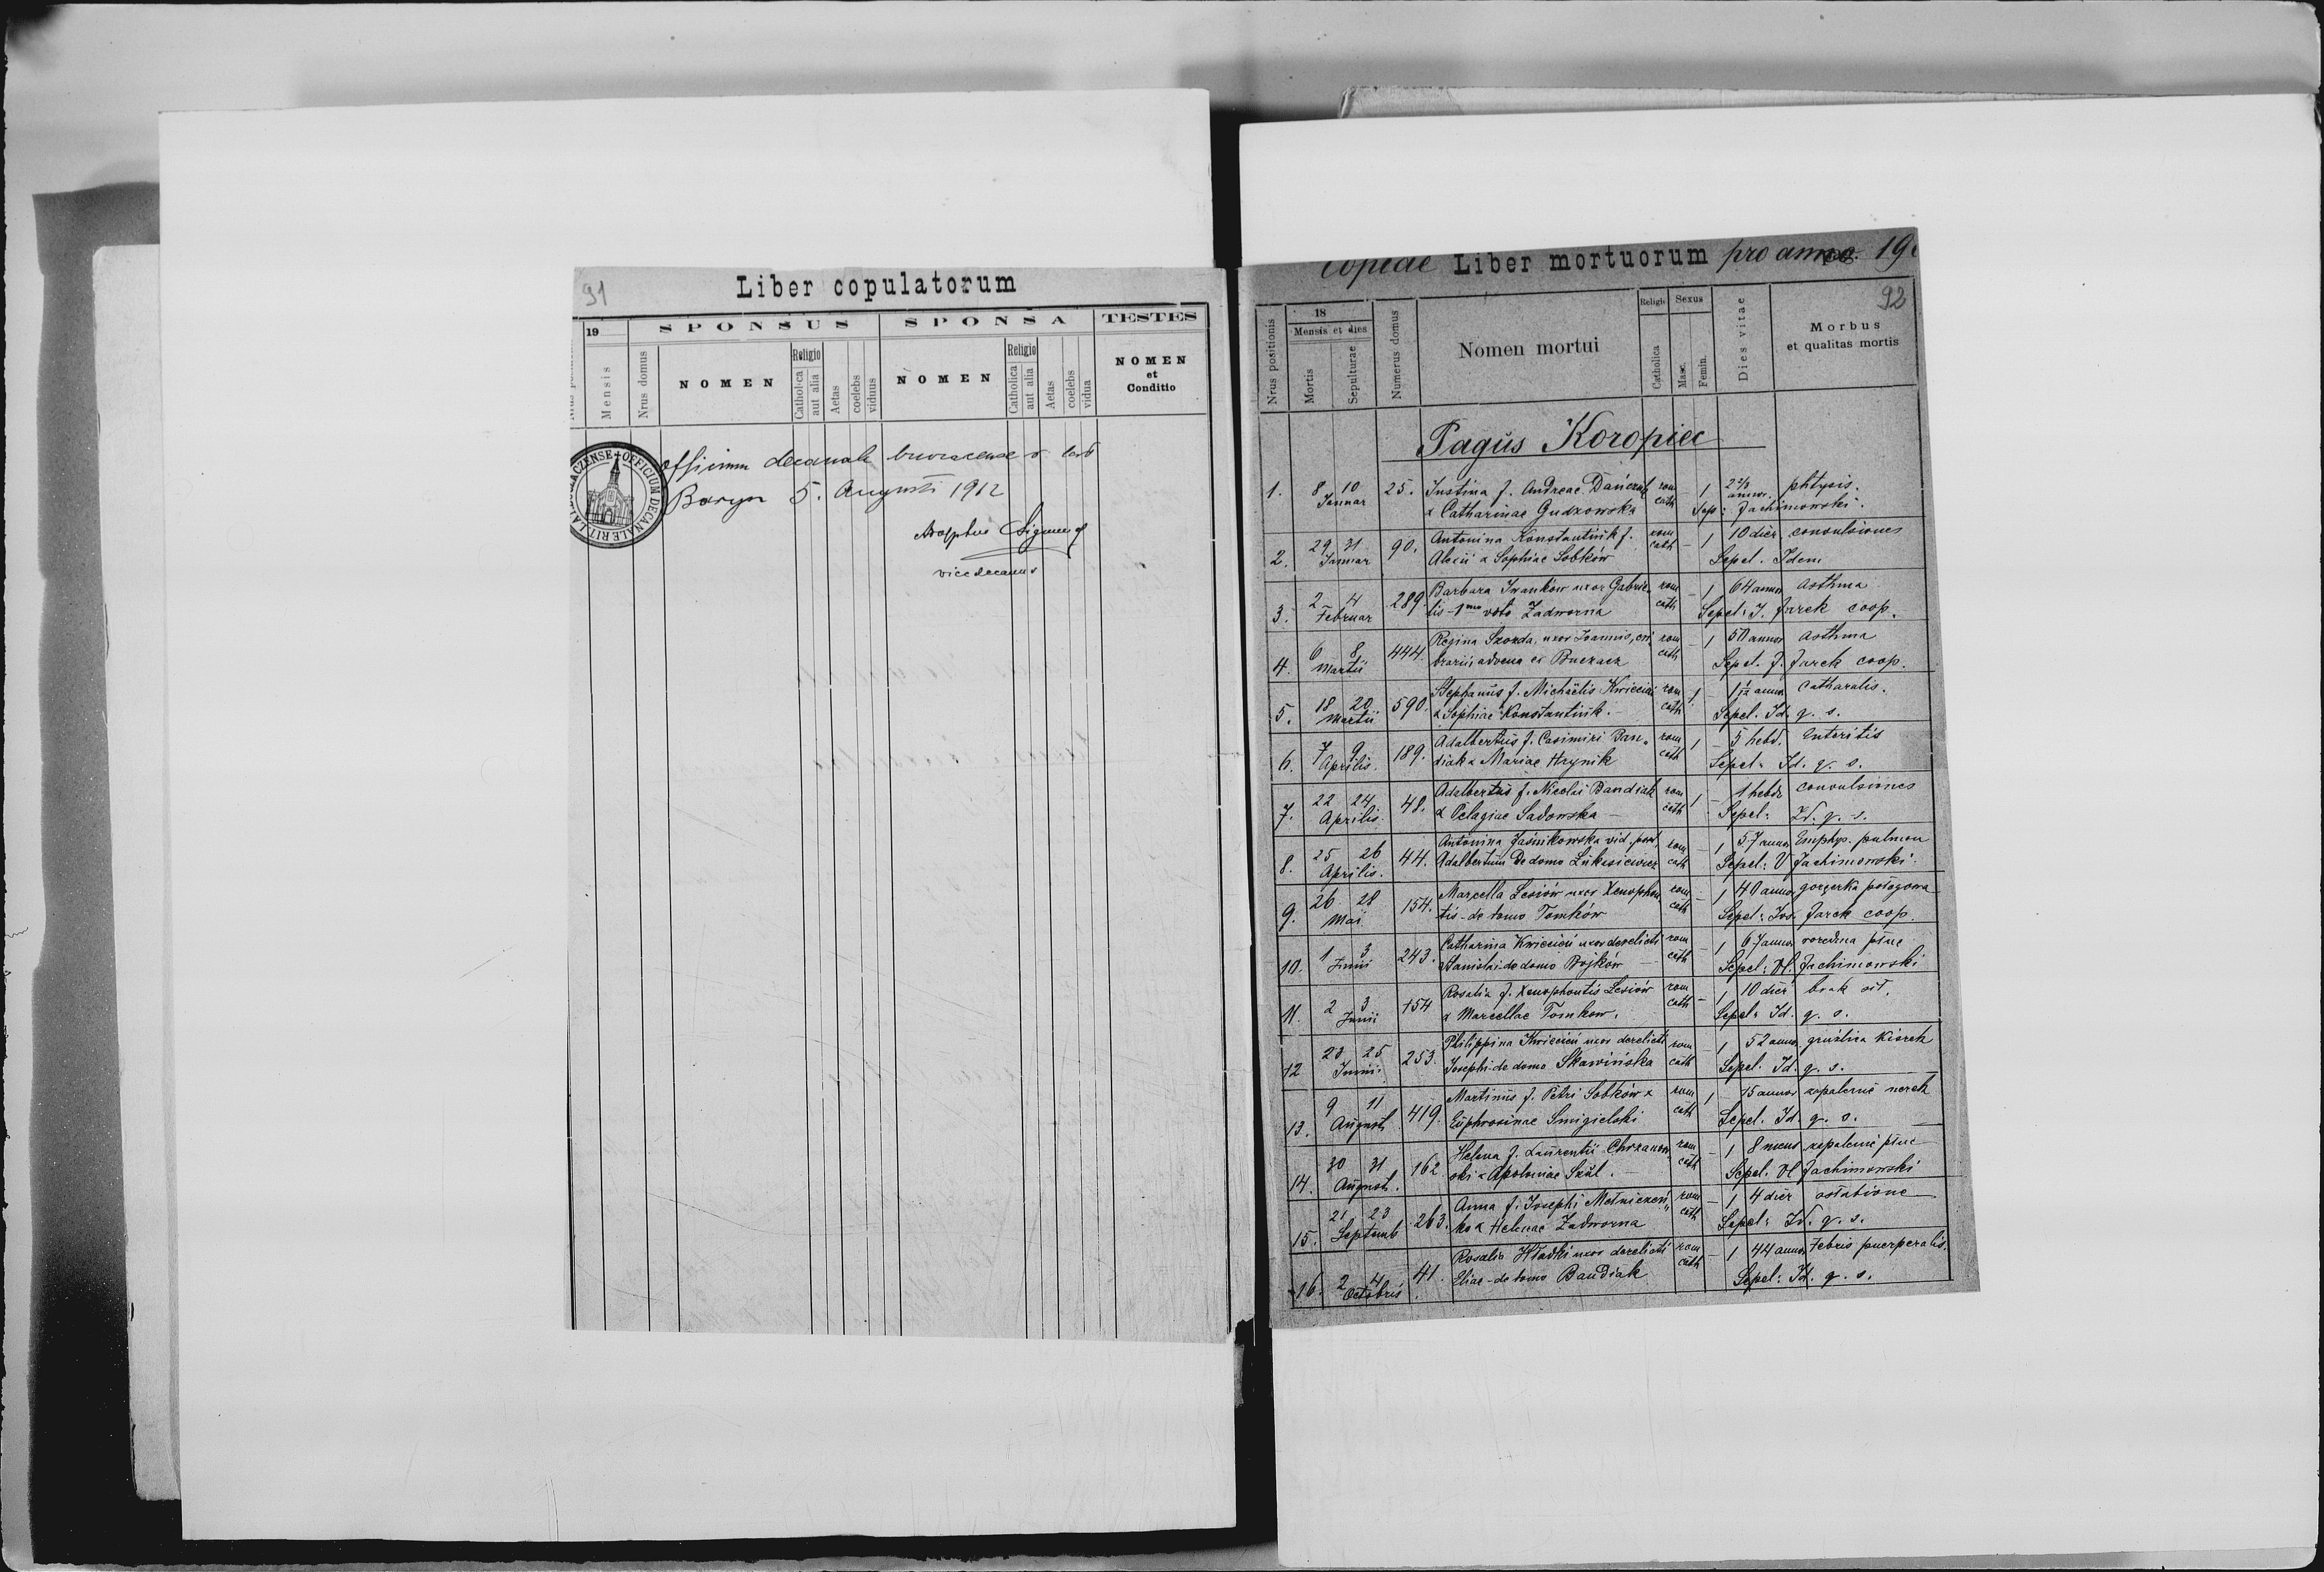 91
Liber copulatorum
19
SPONSUS
SPONSA
TESTES
Mensis
Nrus domus
NOMEN
Religio
Catholica
aut alia
Aetas
coelebs
viduus
NOMEN
Religio
Catholica
aut alia
Aetas
coelebs
vidua
NOMEN
et
Conditio
OFFICIUM DECANALE RIT. LAT.
Officium decanale
Barysz 5. Augusti 1912
vicedecanus
Copiae Liber mortuorum pro anno 19
92
Nrus positionis
18
Mensis et dies
Mortis
Sepulturae
Numerus domus
Nomen mortui
Religio
Catholica
Sexus
Masc.
Femin.
Dies vitae
Morbus
et qualitas mortis
Pagus Koropiec
1. 8 10 Januar 25. Justina f. Andreae Dańczuk rom cath - 1 2 2/3 annor. phtysis.
& Catharinae Gudzowska Sep: Jachimowski.
2. 29 31 Januar 90. Antonina Konstantiuk f. rom cath - 1 10 dier convulsiones
Alexii & Sophiae Sobków Sepel. Idem
3. 2 4 Februar 289. Barbara Iwanków uxor Gabrie rom cath - 1 64 annor Asthma
lis - 1mo voto Zadworna Sepel: J. Jarek coop.
4. 6 8 Martii 444. Regina Szozda, uxor Joannis, cri rom cath - 1 50 annor Asthma
brarii, advena ex Buczacz Sepel. J. Jarek coop.
5. 18 20 Martii 590. Stephanus f. Michaëlis Kwiecień rom cath 1 - 1 1/12 annor Catharalis.
& Sophiae Konstantiuk. Sepel. Id. q. s.
6. 7 9 Aprilis 189. Adalbertus f. Casimiri Ban„ rom cath 1 - 5 hebd. Enteritis
diak & Mariae Hrynik Sepel. Id. q. s.
7. 22 24 Aprilis 48. Adalbertus f. Nicolai Bandiak rom cath 1 - 1 hebd convulsiones
& Pelagiae Sadowska Sepel: Id. q. s.
8. 25 26 Aprilis. 44. Antonina Jaśnikowska vid. post rom cath - 1 57 annor Emphys. pulmon
Adalbertum de domo Lukasiewicz Sepel: Vl Jachimowski.
9. 26 28 Maii 154. Marcella Lesiów uxor Xenophon rom cath - 1 40 annor gorączka połogowa
tis - de domo Tomków Sepel: Jos. Jarek coop.
10. 1 3 Junii 243. Catharina Kwiecień uxor derelicti rom cath - 1 67 annor rozedma płuc
Stanislai de domo Bojków Sepel: Vl. Jachimowski
11. 2 3 Junii 154 Rosalia f. Xenophontis Lesiów rom cath - 1 10 dier brak sił.
& Marcellae Tomkow. Sepel: Id. q. s.
12 23 25 Junii 253. Philippina Kwiecień uxor derelicti rom cath 1 52 annor. gruźlica kiszek
Josephi de domo Skawińska Sepel. Id. q. s.
13. 9 11 August 419. Martinus f. Petri Sobków & rom cath 1 - 15 annor zapalenie nerek
Euphrosinae Smigielski Sepel. Id. q. s.
14. 30 31 August. 162 Helena f. Laurentii Chrzanow rom cath - 1 8 mens zapalenie płuc
ski & Apoloniae Szul. Sepel. Vl Jachimowski
15. 21 23 Septemb 263. Anna f. Josephi Melniczeń„ rom cath - 1 4 dier
ko & Helenae Zadworna Sepel: Id. q. s.
16. 2 4 Octobris 41. Rosalia Hładki uxor derelicti rom cath - 1 44 annor Febris puerperalis.
Eliae - de domo Bandiak Sepel: Id. q. s.